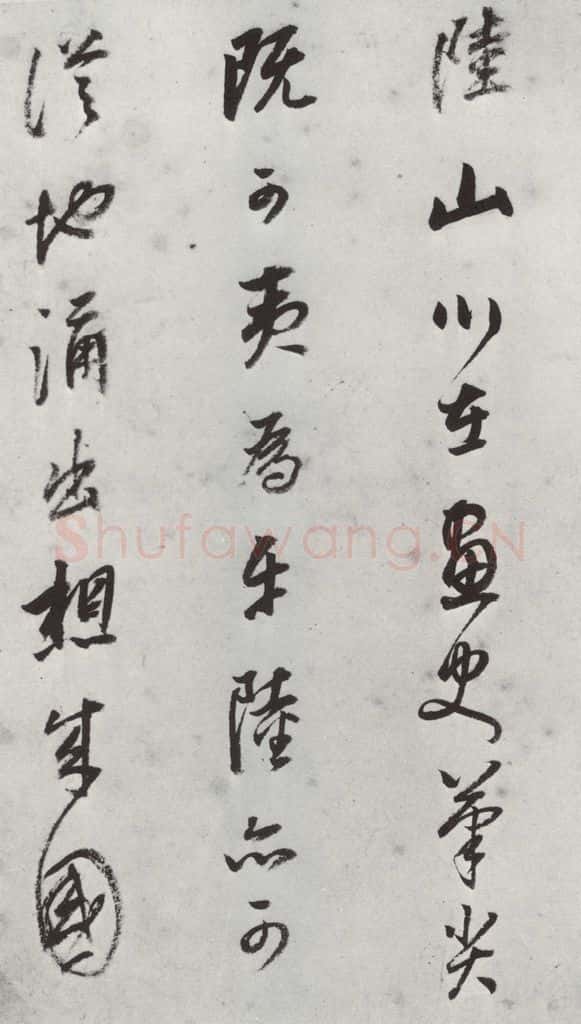 陸山川在畫史筆尖
既可夷為平陸亦可
從地涌出想成國
Shufawang.CN